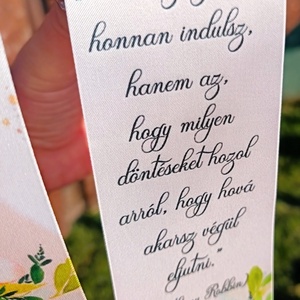 honnan indulsz,
hanem az,
hogy milyen
döntéseket hozol
arról, hogy hová
akarsz végül
eljutni."
Robbins)